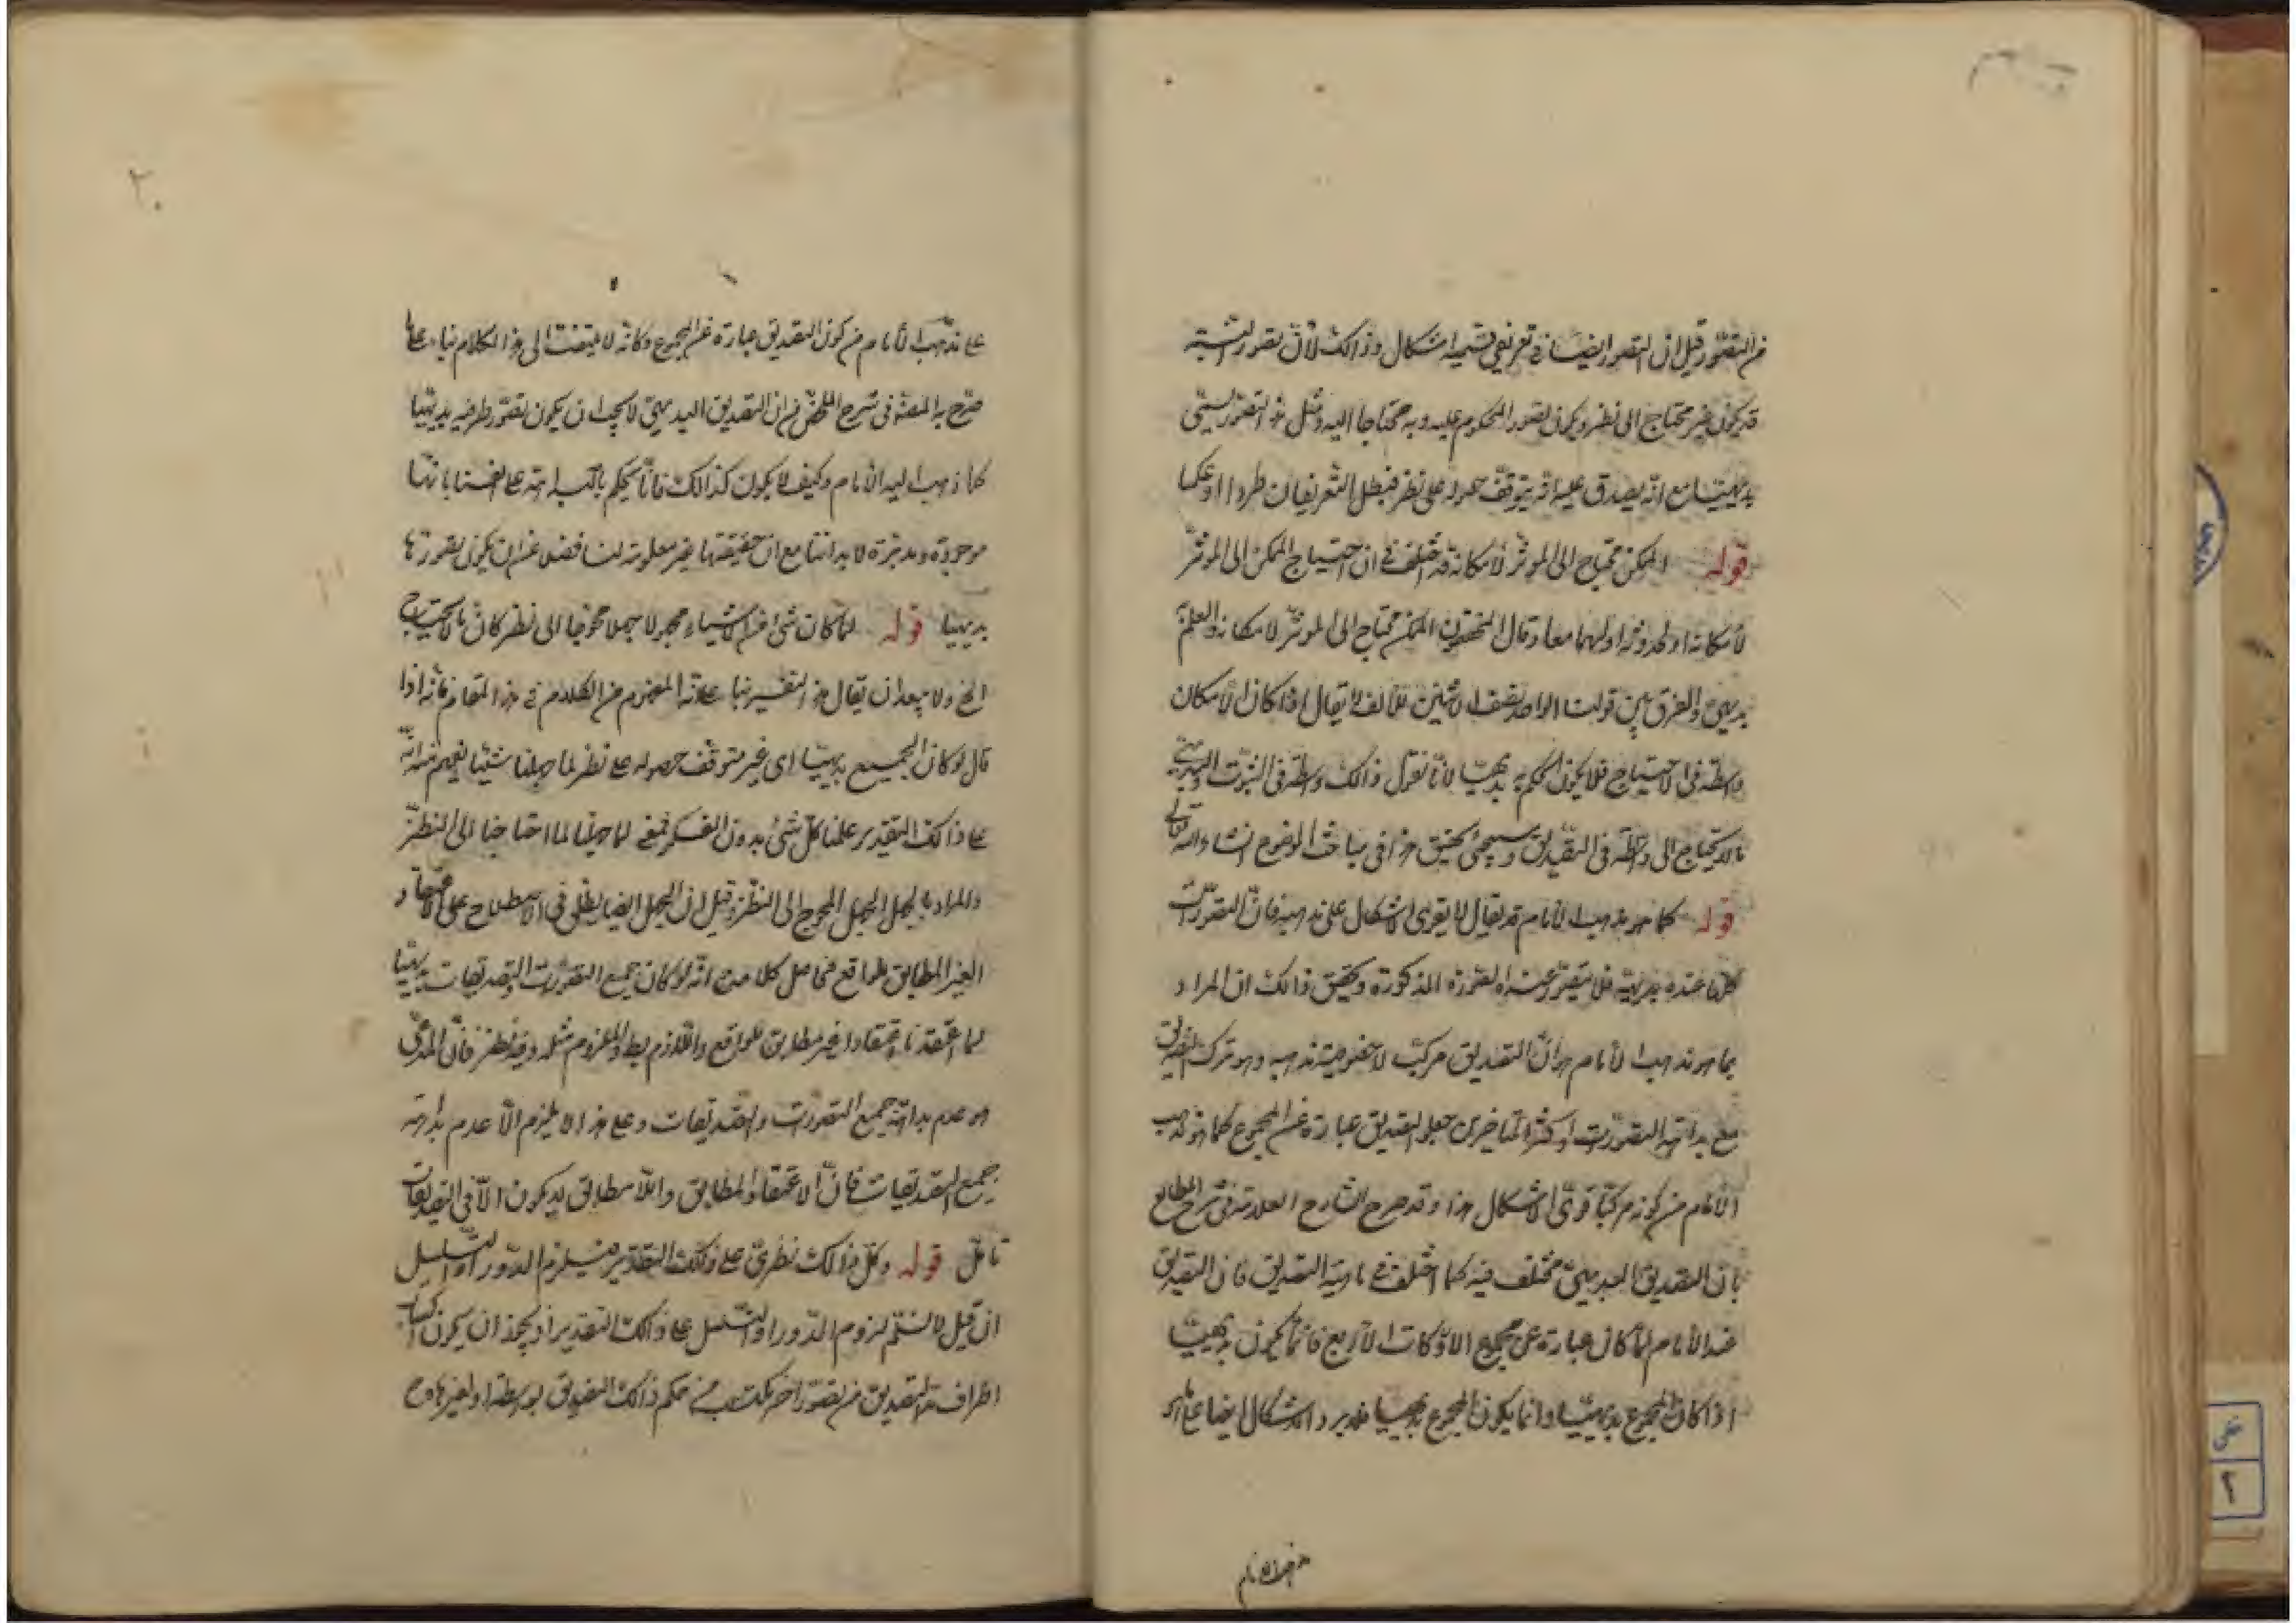 من التصور قيل ان التصور ايضا في تعريفي قسميه اشكال وذالك لان تصور النسبة
قد يكون غير محتاج الى نظر ويكون تصور المحكوم عليه وبه محتاجا اليه ومثل هذا التصور يسمى
بديهيا مع انه يصدق عليه انه يتوقف حصوله على نظر فبطل التعريفان طردا او عكسا
قوله الممكن محتاج الى المؤثر لامكانه قد اختلف في ان احتياج الممكن الى المؤثر
لامكانه او لحدوثه او لهما معا وقال المحققون الممكن محتاج الى المؤثر لامكانه والعلم به
بديهي والفرق بين قولنا الواحد نصف الاثنين للالف لا يقال اذا كان الامكان
واسطة في الاحتياج فلا يكون الحكم به بديهيا لانا نقول ذالك واسطة في الثبوت والبديهي
ما لا يحتاج الى واسطة في التصديق وسيجئ تحقيق هذا في مباحث الموضوع انشاء الله تعالى
قوله كما هو مذهب الامام قد يقال لا يقوى الاشكال على مذهبه فان التصورات
كلها عنده بديهية فلا يتصور عنده الصورة المذكورة وتحقيق ذالك ان المراد
بما هو مذهب الامام هو ان التصديق مركب لا خصوصية مذهبه وهو تركب التصديق
مع بداهة التصورات او اكثر المتاخرين جعلوا التصديق عبارة عن المجموع كما هو مذهب
الامام من كونه مركبا قوى الاشكال هذا وقد صرح الشارح العلامة في شرح المطالع
بان التصديق البديهي مختلف فيه كما اختلف في ماهية التصديق فان التصديق
عند الامام لما كان عبارة عن مجموع الادراكات الاربع فانما يكون بديهيا
اذا كان المجموع بديهيا وانما يكون المجموع بديهيا
عند الامام
٢٠
على مذهب الامام من كون التصديق عبارة عن المجموع وكانه لا يلتفت الى هذا الكلام بناء على ما
صرح به المصنف في شرح الملخص من ان التصديق البديهي لا يجب ان يكون تصور طرفيه بديهيا
كما ذهب اليه الامام وكيف لا يكون كذالك فانا نحكم بالبداهة على انفسنا بانها
موجودة ومدبرة لابداننا مع ان حقيقتها غير معلومة لنا فضلا عن ان يكون تصورها
بديهيا قوله لما كان شئ من الاشياء مجهولا جهلا محوجا الى نظر كان بالاحتياج
الخ ولا يبعد ان يقال هذا التفسير بناء على انه المفهوم من الكلام في هذا المقام فانه اذا
قال لو كان الجميع بديهيا اى غير متوقف حصوله على نظر لما جهلنا شيئا يفهم منه انه
على ذالك التقدير علمنا كل شئ بدون الفكر فمعنى لما جهلنا لما احتاجنا الى النظر
والمراد بالجهل الجهل المحوج الى النظر وقيل ان الجهل ايضا يطلق في الاصطلاح على الاعتقاد
الغير المطابق للواقع فحاصل كلامه انه لو كان جميع التصورات والتصديقات بديهيا
لما اعتقدنا اعتقادا غير مطابق للواقع واللازم بط والملزوم مثله وفيه نظر فان المدعى
هو عدم بداهة جميع التصورات والتصديقات وعلى هذا لا يلزم الا عدم بداهة
جميع التصديقات فان الاعتقاد المطابق واللا مطابق لا يكون الا في التصديقات
تامل قوله وكل ذالك نظرى على ذلك التقدير فيلزم الدور او التسلسل
ان قيل لا نسلم لزوم الدور او التسلسل على ذالك التقدير اذ يجوز ان يكون
اطراف هذا التصديق من تصور اخر مكتسب من حكم ذالك التصديق بواسطة او بغيرها